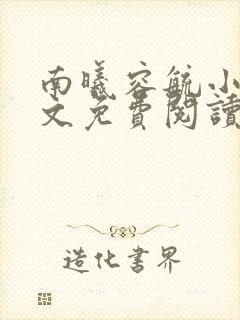 南曦容毓小
文免費閱讀
造化書界